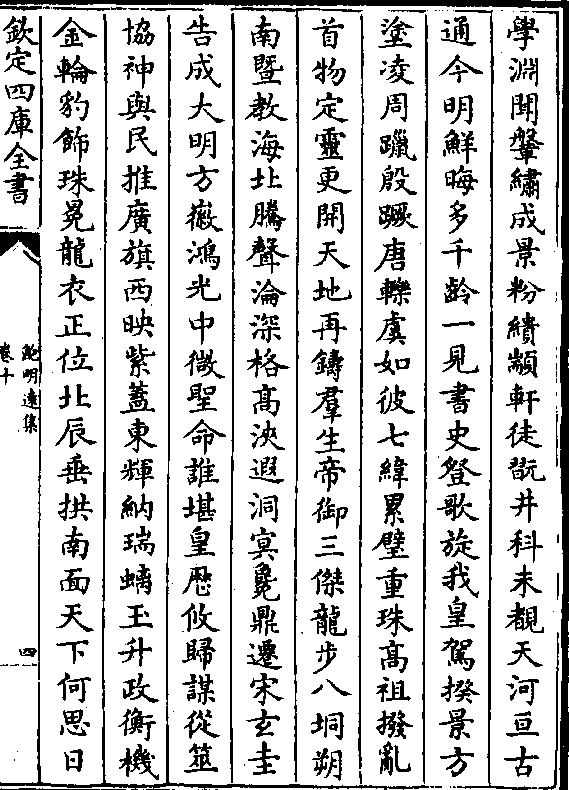 學淵聞鞶繡成景粉繢顓軒徒翫井科未覩天河亘古
通今明鮮晦多千齡一見書史登歌旋我皇駕揆景方
塗凌周躐殷蹶唐轢虞如彼七緯累璧重珠高祖撥亂
首物定靈更開天地再鑄羣生帝御三傑龍步八坰朔
南暨教海北騰聲淪深格高浹遐洞冥彘鼎遷宋玄圭
告成大明方徽鴻光中微聖命誰堪皇歴攸歸謀從筮
協神與民推廣旗西映紫蓋東輝納瑞螭玉升政衡機
金輪豹飾珠冕龍衣正位北辰垂拱南面天下何思日
欽定四庫全書
鮑明遠集
卷十
四